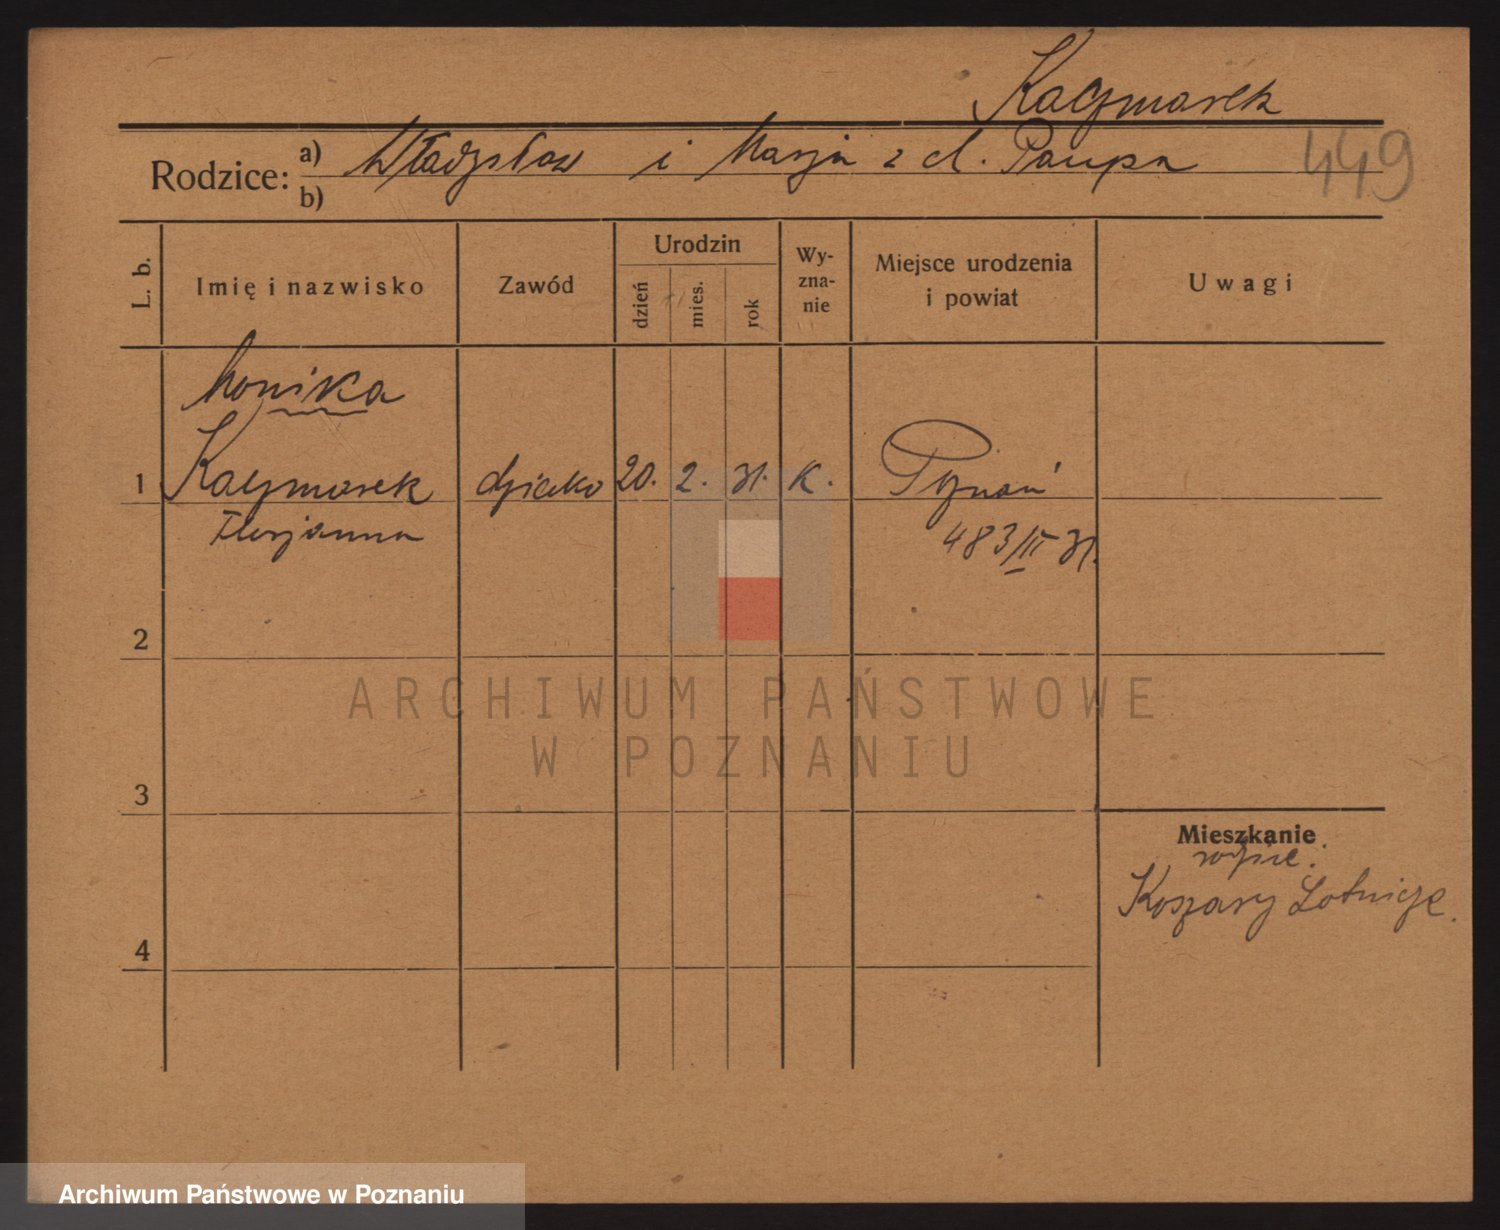 Kaczmarek
Rodzice: a) Władysław i Marja z d. Paupa
b)
449
L. b.
Imię i nazwisko
Zawód
Urodzin
dzień
mies.
rok
Wy-
zna-
nie
Miejsce urodzenia
i powiat
Uwagi
Monika
1 Kaczmarek dziecko 20. 2. 31. K. Poznań
Florjanna
483/II 31.
2
3
4
Mieszkanie
rodzice.
Koszary Lotnicze.
ARCHIWUM PAŃSTWOWE
W POZNANIU
Archiwum Państwowe w Poznaniu